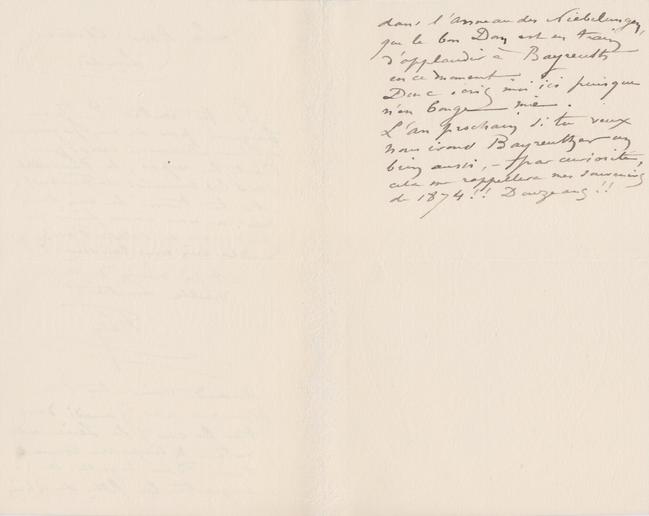 dans l'anneau des Niebelungen,
que le bon Dom est en train
d'applaudir à Bayreuth
en ce moment.
Donc écris moi ici puisque
n'en bouge mie.
L'an prochain si tu veux
nous irons Bayreuther ou
bien aussi, – par curiosité,
cela me rappellera mes souvenirs
de 1874!! Douze ans!!